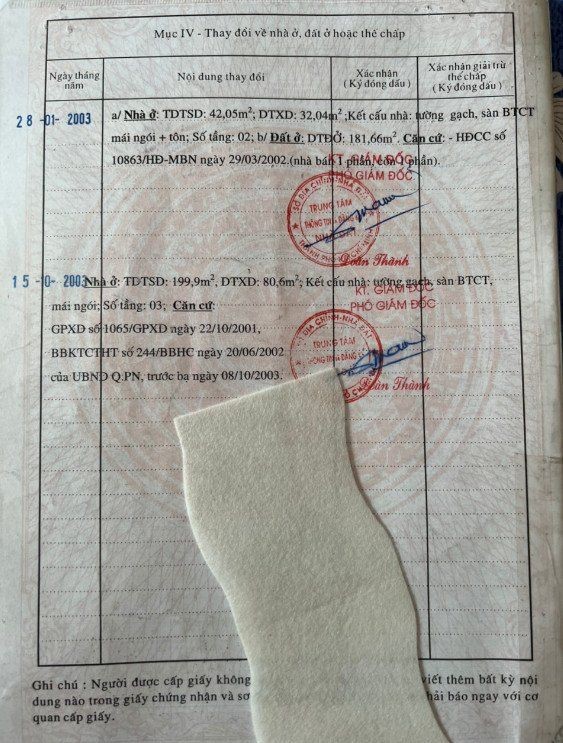 Mục IV - Thay đổi về nhà ở, đất ở hoặc thế chấp
Ngày tháng năm
Nội dung thay đổi
Xác nhận (Ký đóng dấu)
Xác nhận giải trừ thế chấp (Ký đóng dấu)
28 -01- 2003
a/ Nhà ở: TDTSD: 42,05m²; DTXD: 32,04m² ;Kết cấu nhà: tường gạch, sàn BTCT
mái ngói + tôn; Số tầng: 02; b/ Đất ở: DTĐỞ: 181,66m². Căn cứ: - HĐCC số
10863/HD-MBN ngày 29/03/2002.(nhà bán 1 phần, còn 1 phần).
KT. GIÁM ĐỐC
PHÓ GIÁM ĐỐC
SỞ ĐỊA CHÍNH-NHÀ ĐẤT
TRUNG TÂM
THÔNG TIN & ĐĂNG
NHÀ ĐẤT
Đoàn Thành
15 -10- 2003
Nhà ở: TDTSD: 199,9m², DTXD: 80,6m²; Kết cấu nhà: tường gạch, sàn BTCT,
mái ngói; Số tầng: 03; Căn cứ:
KT. GIÁM ĐỐC
PHÓ GIÁM ĐỐC
GPXD số 1065/GPXD ngày 22/10/2001,
BBKTCTHT số 244/BBHC ngày 20/06/2002
của UBND Q.PN, trước bạ ngày 08/10/2003.
SỞ ĐỊA CHÍNH-NHÀ ĐẤT
TRUNG TÂM
Đoàn Thành
Ghi chú : Người được cấp giấy không viết thêm bất kỳ nội
dung nào trong giấy chứng nhận và sơ báo ngay với cơ
quan cấp giấy.